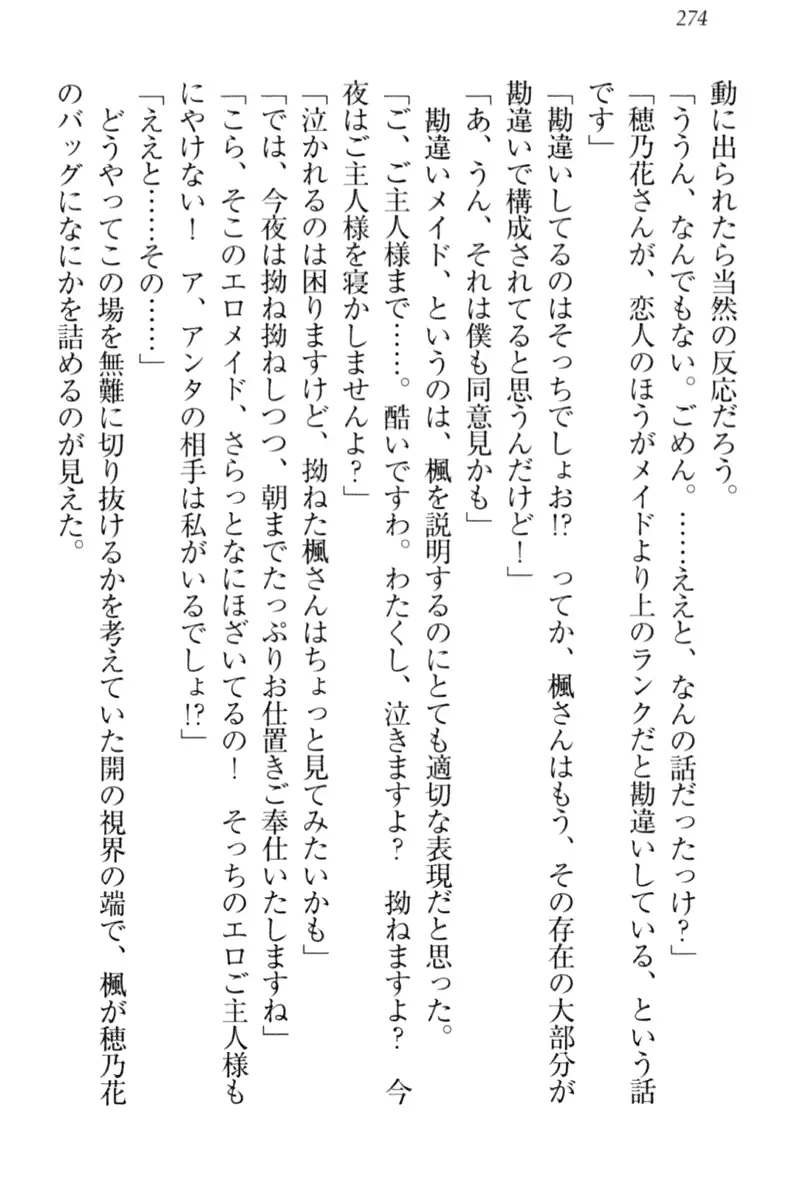 274
動に出られたら当然の反応だろう。
「ううん、なんでもない。ごめん。……ええと、なんの話だったっけ？」
「穂乃花さんが、恋人のほうがメイドより上のランクだと勘違いしている、という話
です」
「勘違いしてるのはそっちでしょお!?　ってか、楓さんはもう、その存在の大部分が
勘違いで構成されてると思うんだけど！」
「あ、うん、それは僕も同意見かも」
　勘違いメイド、というのは、楓を説明するのにとても適切な表現だと思った。
「ご、ご主人様まで……。酷いですわ。わたくし、泣きますよ？　拗ねますよ？　今
夜はご主人様を寝かしませんよ？」
「泣かれるのは困りますけど、拗ねた楓さんはちょっと見てみたいかも」
「では、今夜は拗ね拗ねしつつ、朝までたっぷりお仕置きご奉仕いたしますね」
「こら、そこのエロメイド、さらっとなにほざいてるの！　そっちのエロご主人様も
にやけない！　ア、アンタの相手は私がいるでしょ!?」
「ええと……その……」
　どうやってこの場を無難に切り抜けるかを考えていた開の視界の端で、楓が穂乃花
のバッグになにかを詰めるのが見えた。